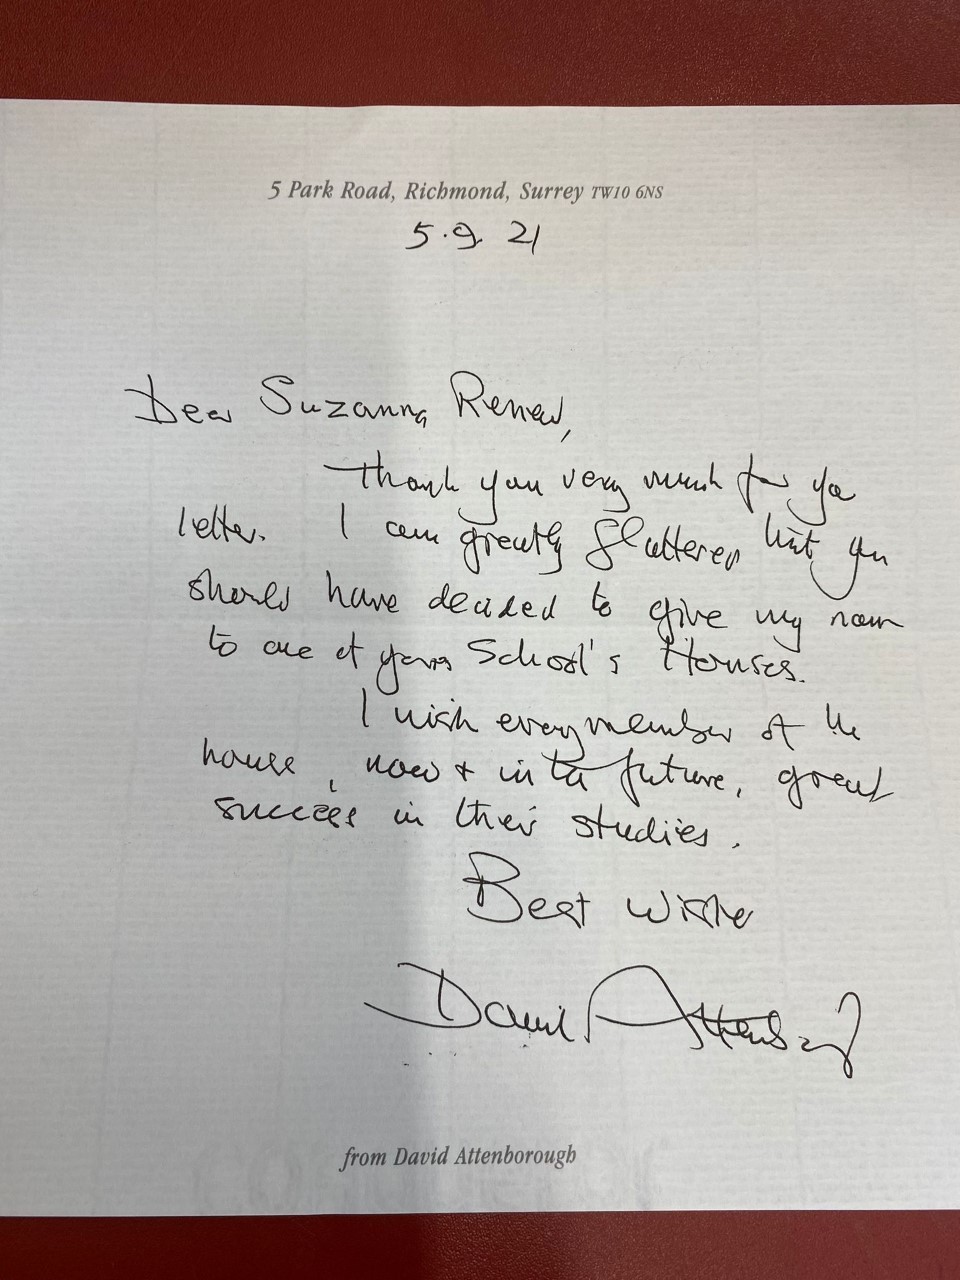 5 Park Road, Richmond, Surrey TW10 6NS
5.9.21
Dear Suzanna Renew,
Thank you very much for your
letter. I am greatly flattered that you
should have decided to give my name
to one of your School's Houses.
I wish every member of the
house, now & in the future, great
success in their studies.
Best wishes
David Attenborough
from David Attenborough